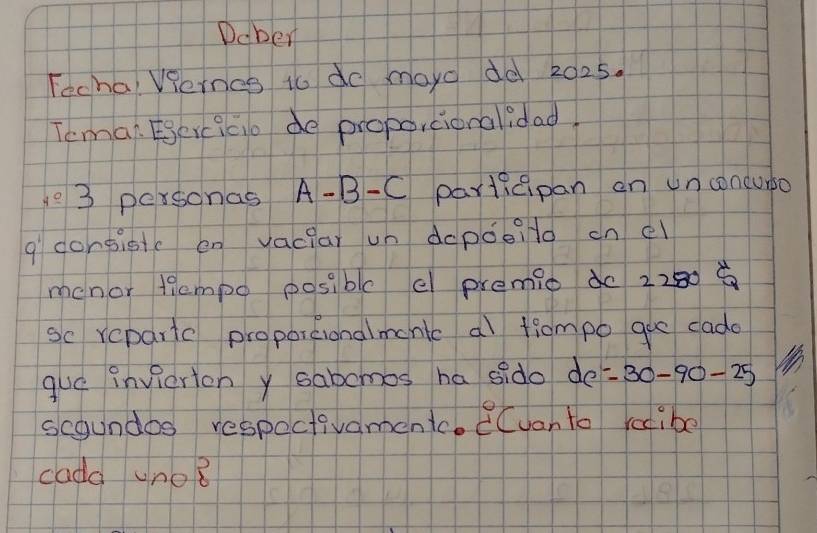 Deber
Fecha: Viernes 16 de mayo del 2025.
Tema: Ejercicio de proporcionalidad.
1º 3 personas A-B-C participan en un concurso
q' consiste en vaciar un deposito en el
menor tiempo posible el premio de 2280 $
se reparte proporcionalmente al tiempo que cada
que invierton y sabemos ha sido de = 30-90-25
segundos respectivamente. ¿Cuanto recibe
cada uno?